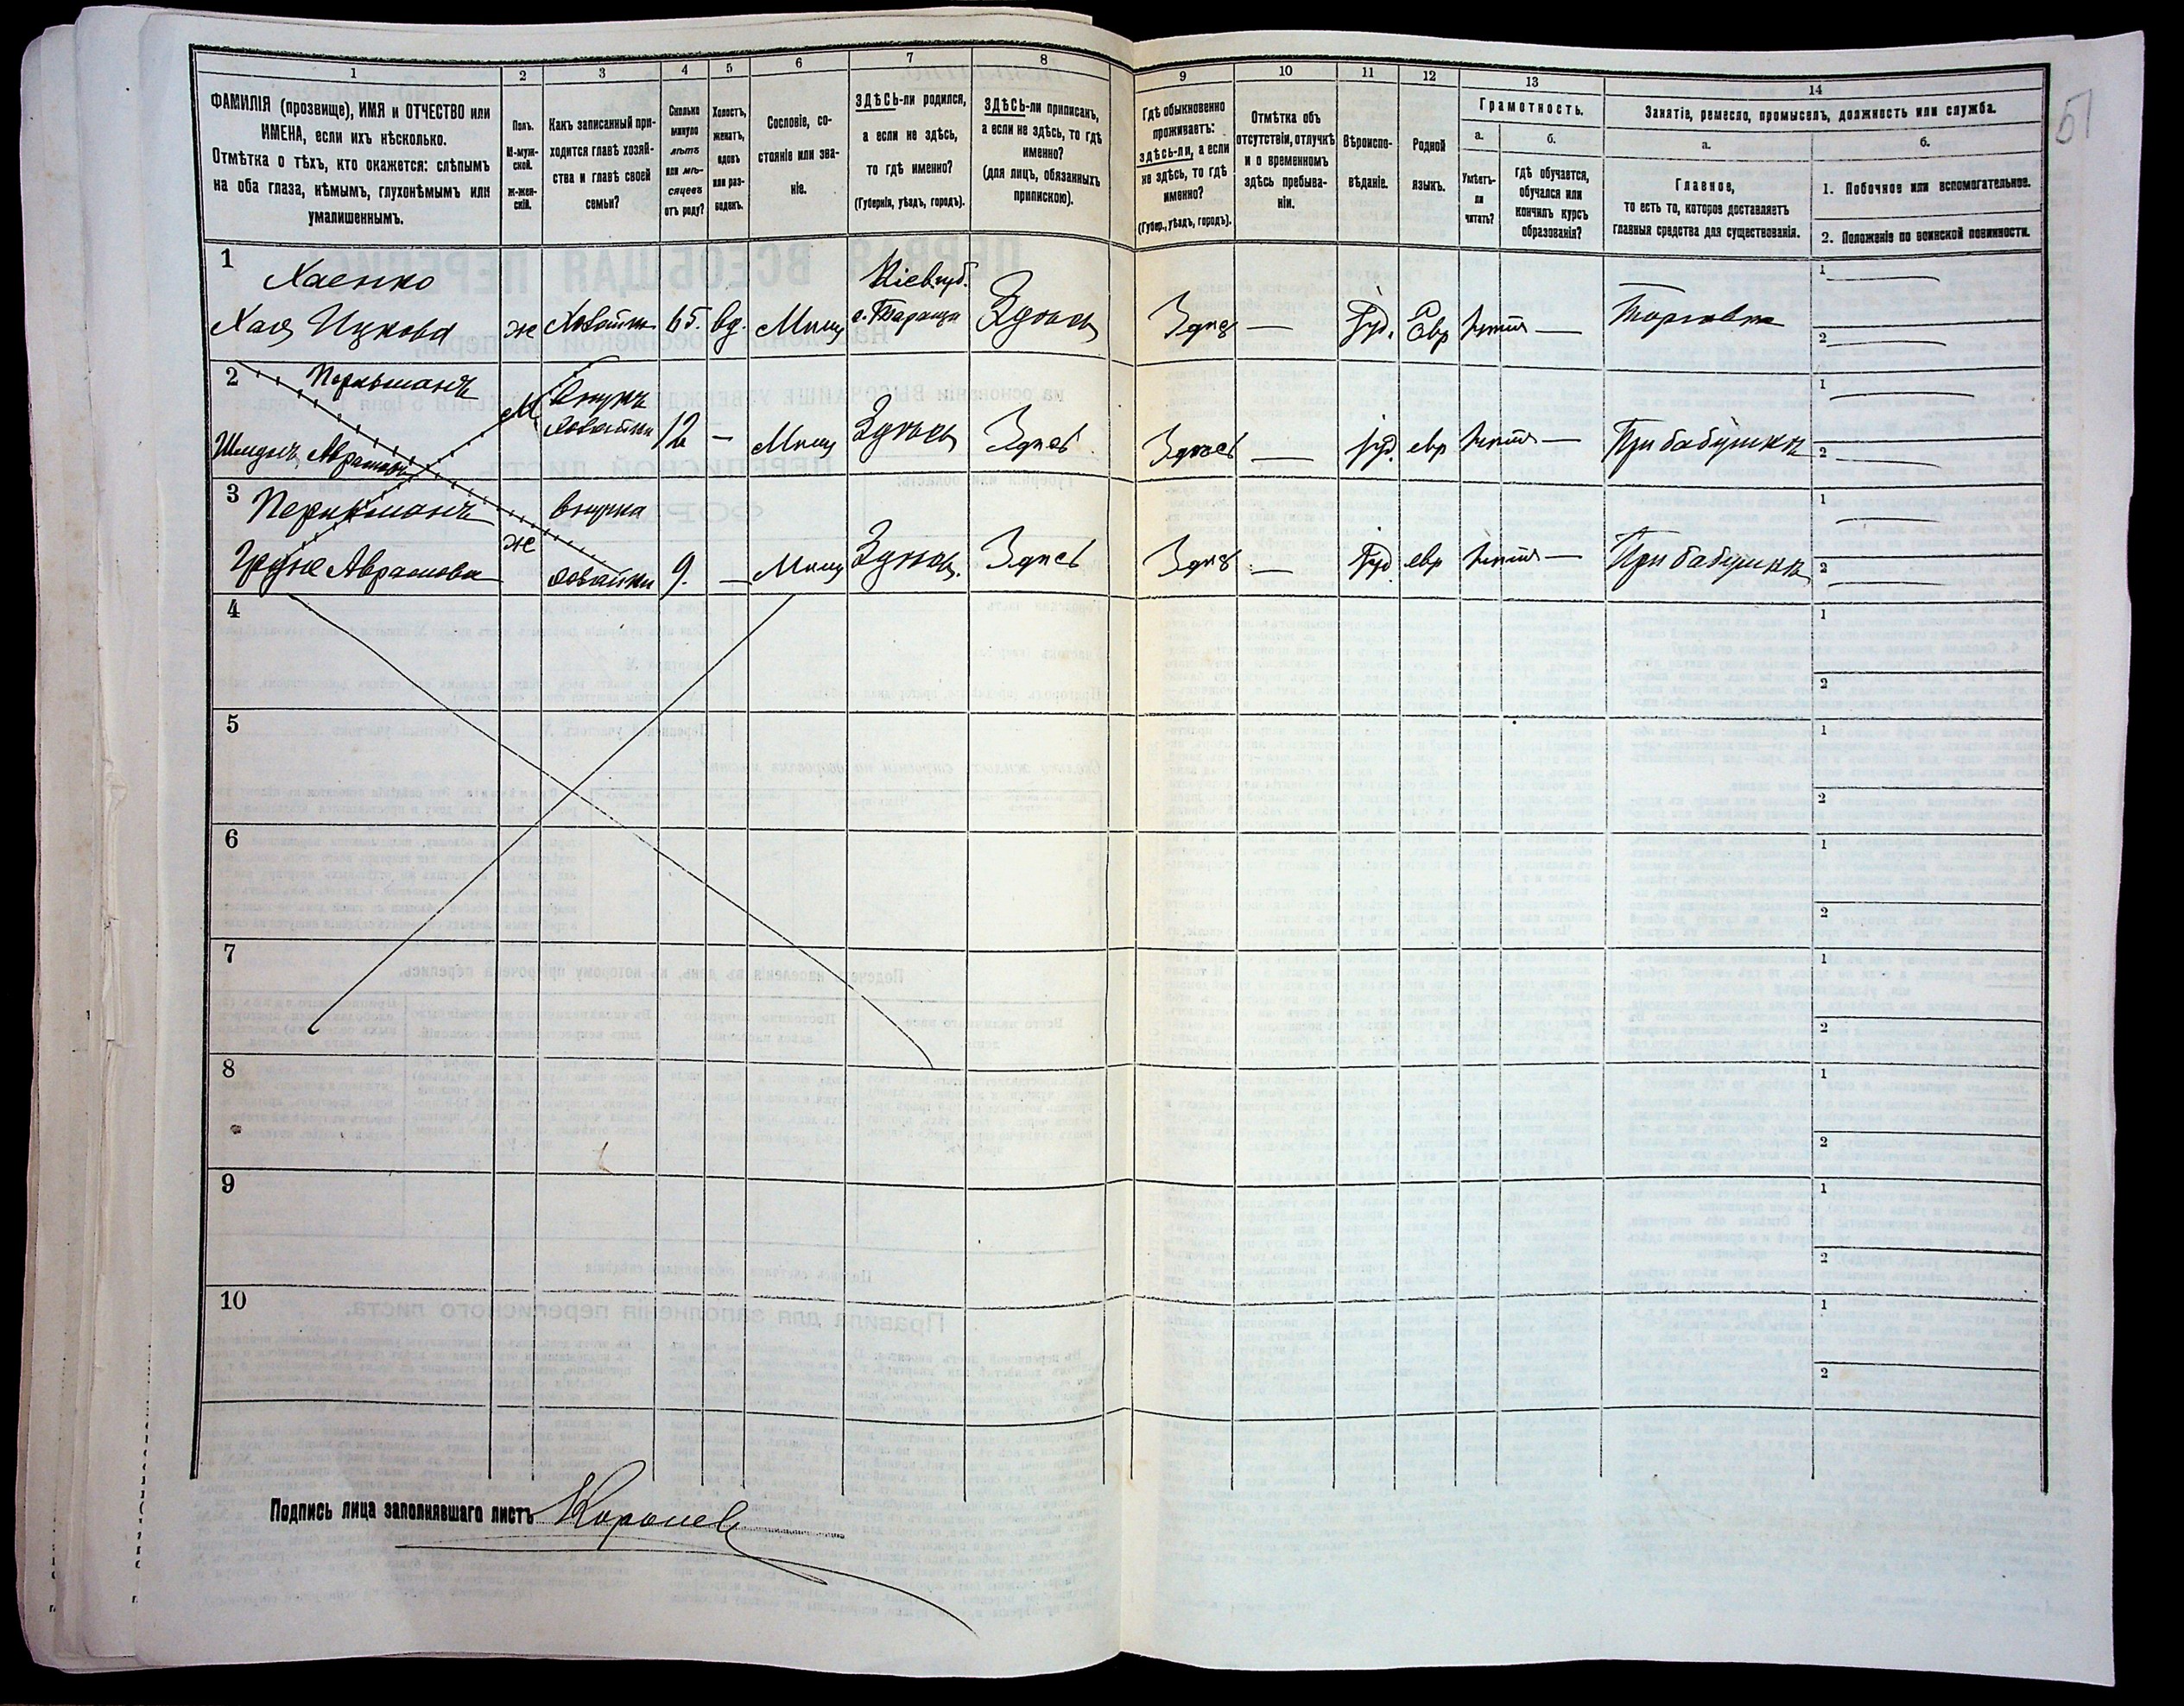 1
2
3
4
5
6
7
8
9
10
11
12
13
14
ФАМИЛІЯ (прозвище), ИМЯ и ОТЧЕСТВО или
ИМЕНА, если ихъ нѣсколько.
Отмѣтка о тѣхъ, кто окажется: слѣпымъ
на оба глаза, нѣмымъ, глухонѣмымъ или
умалишеннымъ.
Полъ.
М-муж-
ской.
ж-жен-
скій.
Какъ записанный при-
ходится главѣ хозяй-
ства и главѣ своей
семьи?
Сколько
минуло
лѣтъ
или мѣ-
сяцевъ
отъ роду?
Холостъ,
женатъ,
вдовъ
или раз-
веденъ.
Сословіе, со-
стояніе или зва-
ніе.
ЗДѢСЬ-ли родился,
а если не здѣсь,
то гдѣ именно?
(Губернія, уѣздъ, городъ).
ЗДѢСЬ-ли приписанъ,
а если не здѣсь, то гдѣ
именно?
(для лицъ, обязанныхъ
припискою).
Гдѣ обыкновенно
проживаетъ:
здѣсь-ли, а если
не здѣсь, то гдѣ
именно?
(Губер., уѣздъ, городъ).
Отмѣтка объ
отсутствіи, отлучкѣ
и о временномъ
здѣсь пребыва-
ніи.
Вѣроиспо-
вѣданіе.
Родной
языкъ.
Грамотность.
а.
Умѣетъ-
ли
читать?
б.
гдѣ обучается,
обучался или
кончилъ курсъ
образованія?
Занятіе, ремесло, промыселъ, должность или служба.
а.
Главное,
то есть то, которое доставляетъ
главныя средства для существованія.
б.
1. Побочное или вспомогательное.
2. Положеніе по воинской повинности.
51
1
Хаенко
Хая Ицкова
ж
Хозяйка
65.
вд.
Мѣщ
Кіев. губ.
г. Тараща
Здѣсь
Здѣсь
—
Іуд.
Евр
нѣтъ —
Торговка
1
2
2
Перкьманъ
Авраmовъ
М
внукъ
хозяйки
12
—
Мѣщ
Здѣсь
Здѣсь
Здѣсь
—
Іуд.
евр
нѣтъ —
При бабушкѣ
1
2
3
внучка
Аврамова
ж
хозяйки
9.
—
Мѣщ
Здѣсь
Здѣсь
Здѣсь
—
Іуд
евр
нѣтъ —
При бабушкѣ
1
2
4
1
2
5
1
2
6
1
2
7
1
2
8
1
2
9
1
2
10
1
2
Подпись лица заполнявшаго листъ